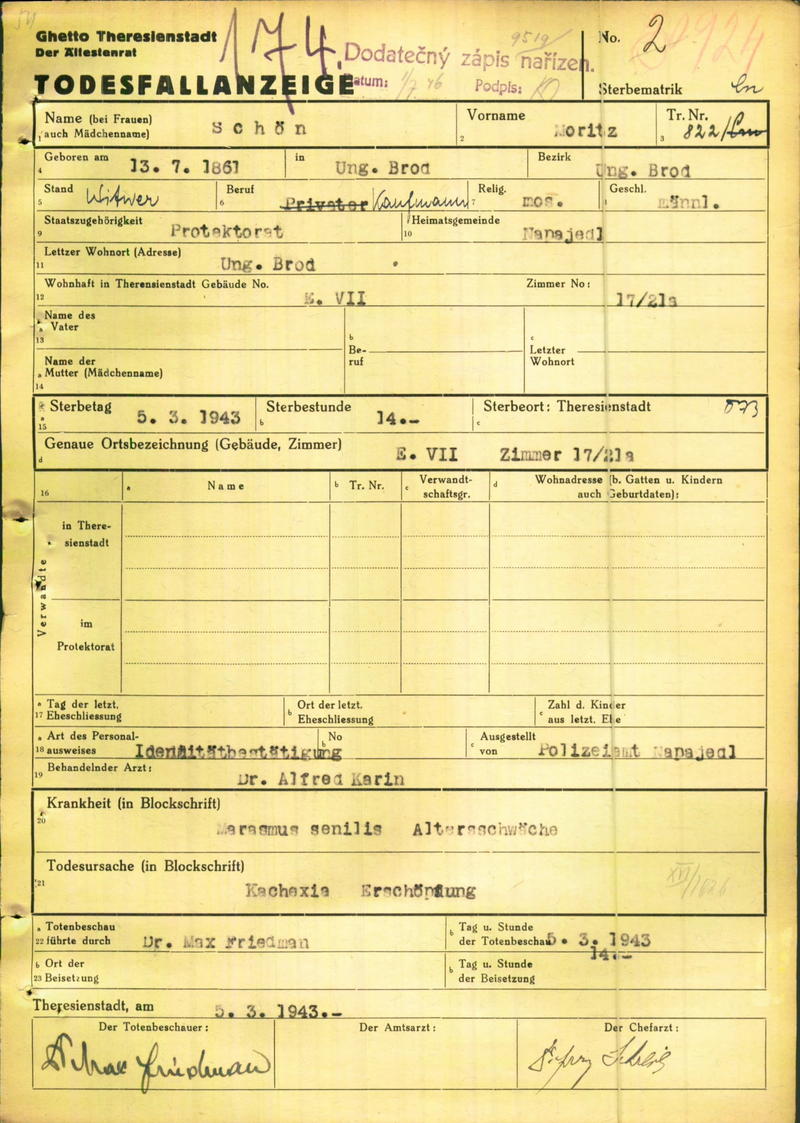 Ghetto Theresienstadt
Der Ältestenrat
TODESFALLANZEIGE
174
Dodatečný zápis nařízen.
Datum: Podpis:
No. 2
Sterbematrik
Name (bei Frauen) Schön Vorname Moritz Tr. Nr.
1 auch Mädchenname) 2 3 822
Geboren am 13. 7. 1861 in Ung. Brod Bezirk Ung. Brod
4
Stand Witwer Beruf Privater Kaufmann Relig. mos. Geschl. männl.
5 6 7
Staatszugehörigkeit Protektorat Heimatsgemeinde Napajedl
9 10
Lettzer Wohnort (Adresse)
11 Ung. Brod
Wohnhaft in Theresiensienstadt Gebäude No. E. VII Zimmer No: 17/21a
12
Name des
a Vater
13
b Be-
ruf
c Letzter
Wohnort
Name der
a Mutter (Mädchenname)
14
Sterbetag 5. 3. 1943 Sterbestunde 14.- Sterbeort: Theresienstadt
a 15 b c
Genaue Ortsbezeichnung (Gebäude, Zimmer) E. VII Zimmer 17/21a
d
16 a Name b Tr. Nr. c Verwandt-
schaftsgr. d Wohnadresse (b. Gatten u. Kindern
auch Geburtdaten):
Verwandte
in There-
sienstadt
im
Protektorat
a Tag der letzt.
17 Eheschliessung
b Ort der letzt.
Eheschliessung
c Zahl d. Kinder
aus letzt. Ehe
a Art des Personal-
18 ausweises Identitätbestätigung
b No
c Ausgestellt
von Polizeiamt Napajedl
Behandelnder Arzt:
19 Dr. Alfred Karin
Krankheit (in Blockschrift)
20 Marasmus senilis Altersschwäche
Todesursache (in Blockschrift)
21 Kachexia Erschöpfung
a Totenbeschau
22 führte durch Dr. Max Friedman
b Tag u. Stunde
der Totenbeschau 5. 3. 1943
14.-
b Ort der
23 Beisetzung
b Tag u. Stunde
der Beisetzung
Theresienstadt, am 5. 3. 1943.-
Der Totenbeschauer: Der Amtsarzt: Der Chefarzt:
Dr Max Friedman